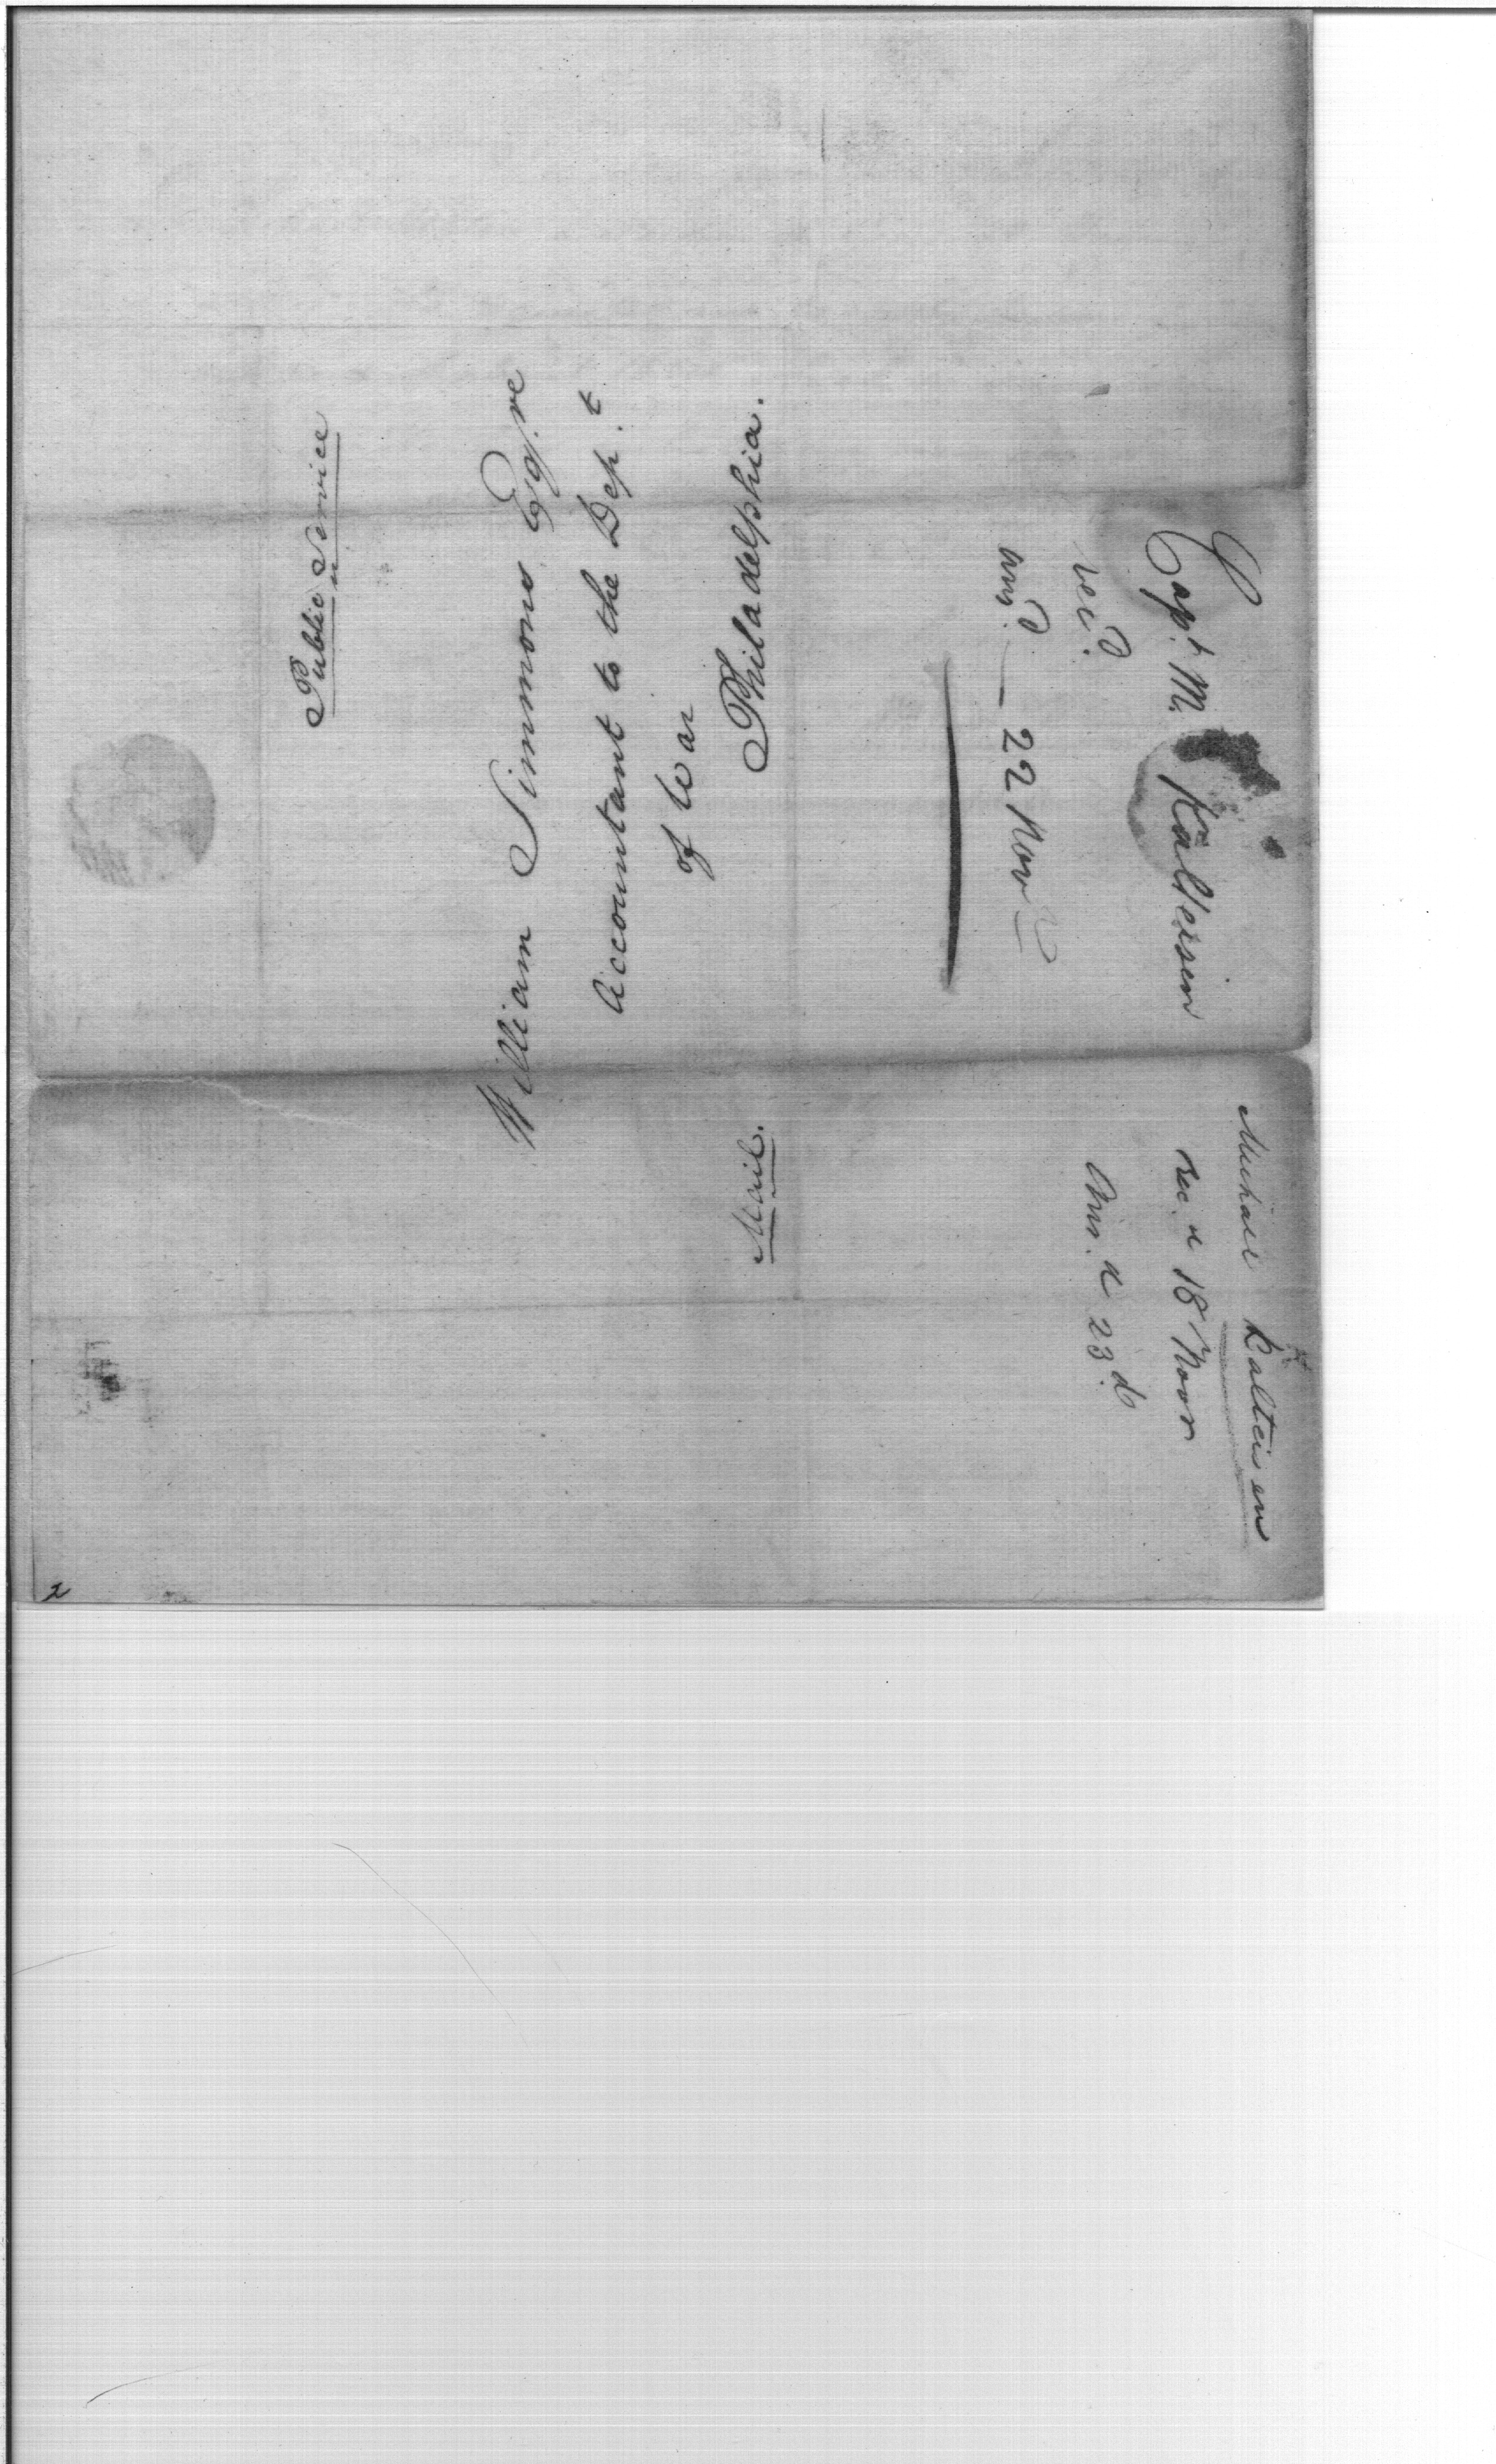 Public Service
William Simmons Esq.re
Accountant to the Dep.t
of War
Philadelphia.
Mail.
Capt. M. Kalteisen
recd.
ansd. — 22 Novr
Michael Kalteisen
rec.d 18 Novr
Ans.d 23.d
2